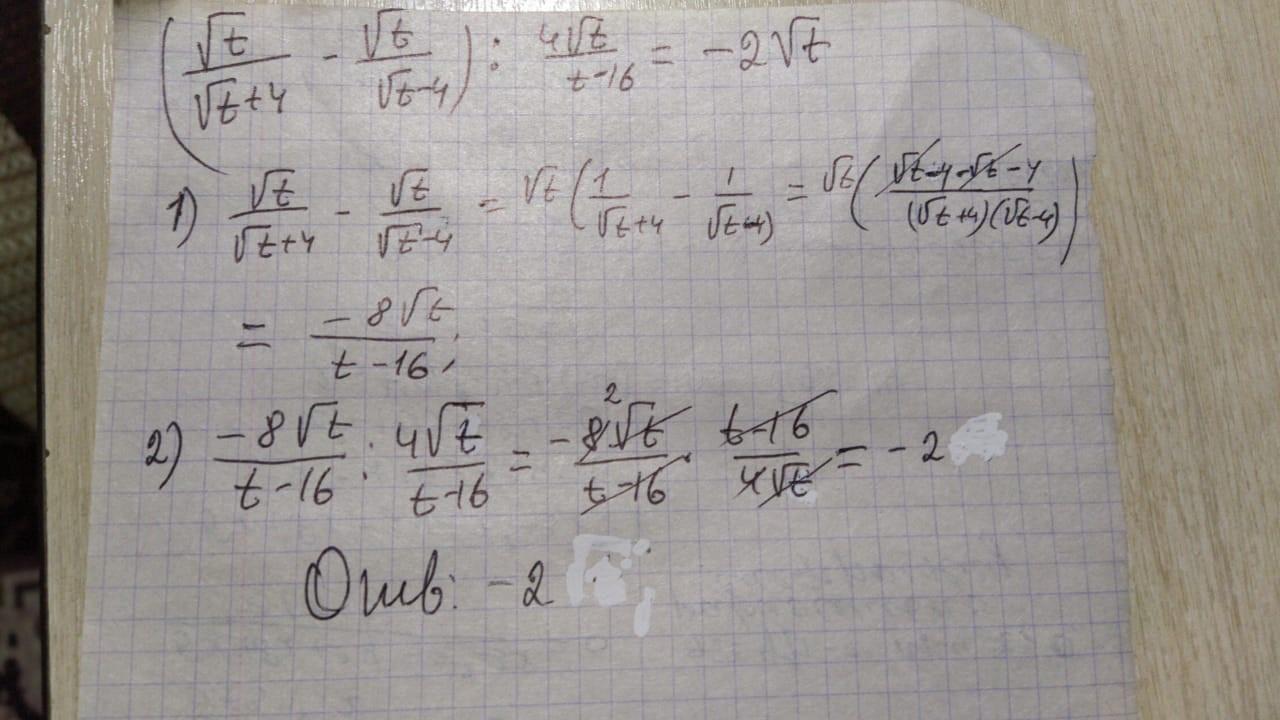 (√t/(√t+4) - √t/(√t-4)) : 4√t/(t-16) = -2√t
1) √t/(√t+4) - √t/(√t-4) = √t(1/(√t+4) - 1/(√t-4)) = √t((√t-4-√t-4)/((√t+4)(√t-4)))
= -8√t/(t-16);
2) -8√t/(t-16) : 4√t/(t-16) = -8√t/(t-16) · (t-16)/(4√t) = -2
Отв: -2